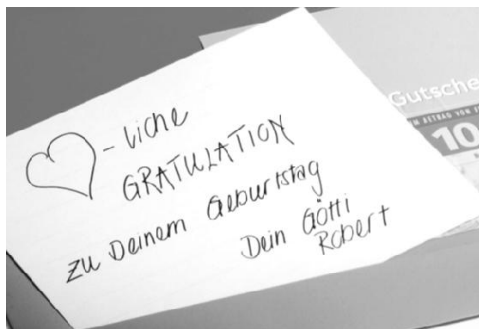 -liche
GRATULATION
zu Deinem Geburtstag
Dein Götti
Robert
Gutsche
BETRAG VON
10